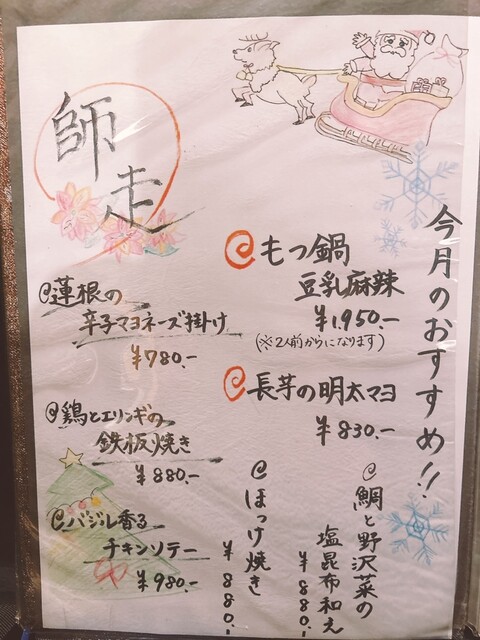 師走
今月のおすすめ!!
@もつ鍋
豆乳麻辣
¥1,950.-
(※2人前からになります)
@長芋の明太マヨ
¥830.-
@鯛と野沢菜の
塩昆布和え
¥880.-
@ほっけ焼き
¥880.-
@蓮根の
辛子マヨネーズ掛け
¥780.-
@鶏とエリンギの
鉄板焼き
¥880.-
@バジル香る
チキンソテー
¥980.-